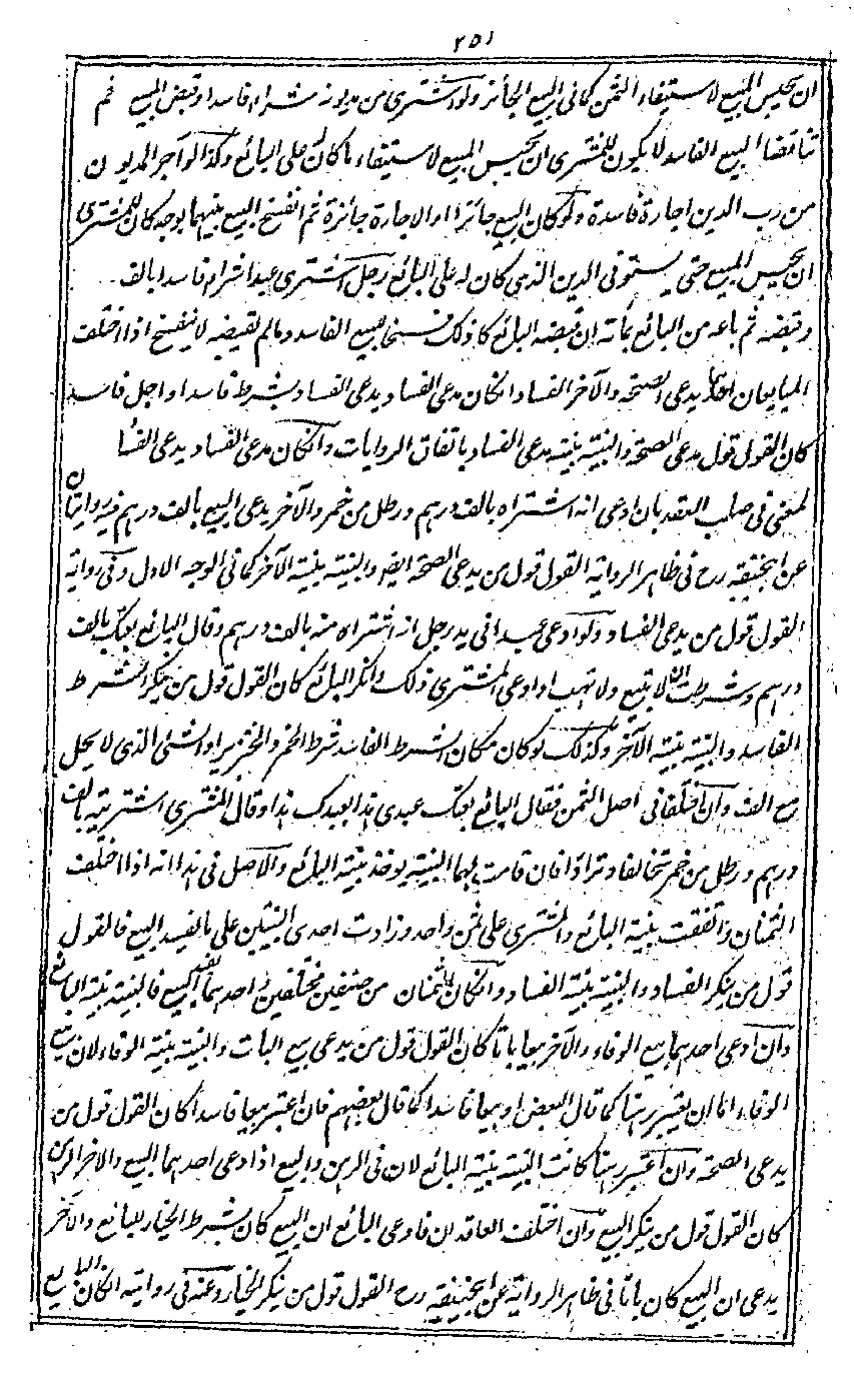 ٢٥١
ان يحبس المبيع لاستيفاء الثمن كما فى البيع الجائز ولو اشترى من مديونه شراء فاسدا وقبض المبيع ثم
تناقضا البيع الفاسد لا يكون للمشترى ان يحبس المبيع لاستيفاء ما كان له على البائع وكذا لو آجر المديون
من رب الدين اجارة فاسدة ولو كان البيع جائزا او الاجارة جائزة ثم انفسخ البيع بينهما بوجه كان للمشترى
ان يحبس المبيع حتى يستوفى الدين الذى كان له على البائع رجل اشترى عبدا شراء فاسدا بالف
وقبضه ثم باعه من البائع بمائة ان قبضه البائع كان ذلك فسخا للبيع الفاسد وما لم يقبضه لا ينفسخ اذا اختلف
المبايعان احدهما يدعى الصحة والآخر الفساد ان كان مدعى الفساد يدعى الفساد بشرط فاسد او اجل فاسد
كان القول قول مدعى الصحة والبينة بينة مدعى الفساد باتفاق الروايات وان كان مدعى الفساد يدعى الفسا
لمعنى فى صلب العقد بان ادعى انه اشتراه بالف درهم ورطل من خمر والآخر يدعى البيع بالف درهم فيه روايتان
عن ابيحنيفة رح فى ظاهر الرواية القول قول من يدعى الصحة ايضا والبينة بينة الآخر كما فى الوجه الاول وفى رواية
القول قول من يدعى الفساد ولو ادعى عبدا فى يد رجل انه اشتراه منه بالف درهم وقال البائع بعتك بالف
درهم وشرطت ان لا تبيع ولا تهب او ادعى المشترى ذلك وانكر البائع كان القول قول من ينكر الشرط
الفاسد والبينة بينة الآخر وكذلك لو كان مكان الشرط الفاسد شرط الخمر والخنزير او الشئ الذى لا يحل
مع الالف وان اختلفا فى اصل الثمن فقال البائع بعتك عبدى هذا بعبدك هذا وقال المشترى اشتريته بالف
درهم ورطل من خمر تحالفا وترادا فان قامت لهما البينة يوخذ ببينة البائع والاصل فى هذا انه اذا اختلف
الثمنان واتفقت بينة البائع والمشترى على ثمن واحد وزادت احدى البينتين على ما يفسد البيع فالقول
قول من ينكر الفساد والبينة بينة الفساد وان كان الثمنان من جنسين مختلفين واحدهما يفسد البيع فالبينة بينة البائع
وان ادعى احدهما بيع الوفاء والآخر بيعا باتا كان القول قول من يدعى بيع البات والبينة بينة الوفاء لان بيع
الوفاء اما ان يعتبر رهنا كما قال البعض او بيعا فاسدا كما قال بعضهم فان اعتبر بيعا فاسدا كان القول قول من
يدعى الصحة وان اعتبر رهنا كانت البينة بينة البائع لان فى الرهن والبيع اذا ادعى احدهما البيع والاخر الرهن
كان القول قول من ينكر البيع وان اختلف العاقدان فادعى البائع ان البيع كان بشرط الخيار للبائع والآخر
يدعى ان البيع كان باتا فى ظاهر الرواية عن ابيحنيفة رح القول قول من ينكر الخيار وعنه فى رواية ان كان البائع